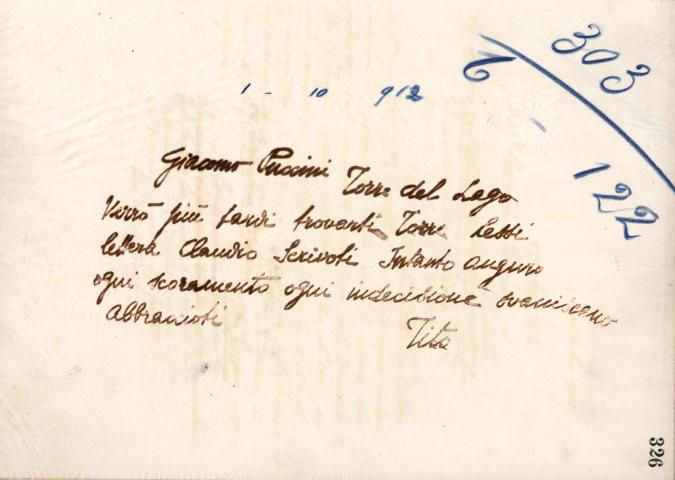 303
6 - 122
1 - 10 912
Giacomo Puccini Torre del Lago
Verrò più tardi trovarti Torre Lessi
lettera Claudio Scrivoti Intanto auguro
ogni scoramento ogni indecisione svaniscano
abbraccioti
Tito
326